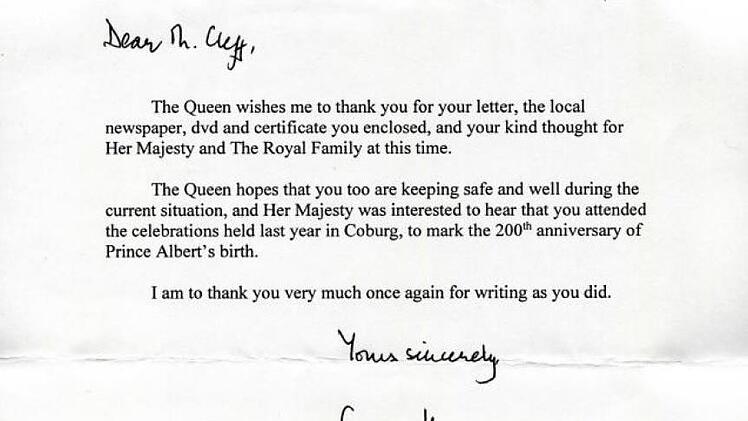 Dear Mr. Cleff,
The Queen wishes me to thank you for your letter, the local
newspaper, dvd and certificate you enclosed, and your kind thought for
Her Majesty and The Royal Family at this time.
The Queen hopes that you too are keeping safe and well during the
current situation, and Her Majesty was interested to hear that you attended
the celebrations held last year in Coburg, to mark the 200th anniversary of
Prince Albert's birth.
I am to thank you very much once again for writing as you did.
Yours sincerely